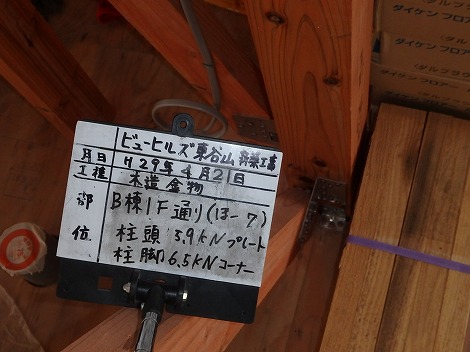 ビューヒルズ東谷山 新築工事
月日 H29年4月21日
工種 木造金物
部位 B棟1F通り(13-7)
柱頭 3.9kNプレート
柱脚 6.5kNコーナー
ダイケンフロア
ダイケン フロア